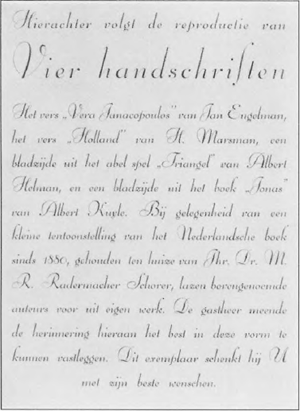 Hierachter volgt de reproductie van
Vier handschriften
Het vers „Vera Janacopoulos" van Jan Engelman,
het vers „Holland" van H. Marsman, een
bladzijde uit het abel spel „Triangel" van Albert
Helman, en een bladzijde uit het boek „Jonas"
van Albert Kuyle. Bij gelegenheid van een
kleine tentoonstelling van het Nederlandsche boek
sinds 1880, gehouden ten huize van Jhr. Dr. M.
R. Radermacher Schorer, lazen bovengenoemde
auteurs voor uit eigen werk. De gastheer meende
de herinnering hieraan het best in deze vorm te
kunnen vastleggen. Dit exemplaar schenkt hij U
met zijn beste wenschen.